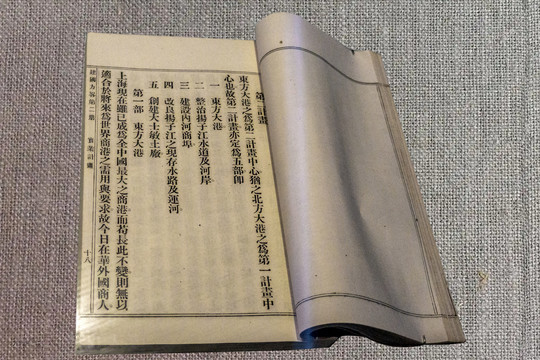 第二計畫
東方大港之爲第二計畫中心猶之北方大港之爲第一計畫中
心也故第二計畫亦定爲五部卽
一 東方大港
二 整治揚子江水道及河岸
三 建設內河商埠
四 改良揚子江之現存水路及運河
五 創建大士敏土廠
第一部 東方大港
上海現在雖已成爲全中國最大之商港而苟長此不變則無以
適合於將來爲世界商港之需用與要求故今日在華外國商人
建國方畧第二集 實業計畫 十八